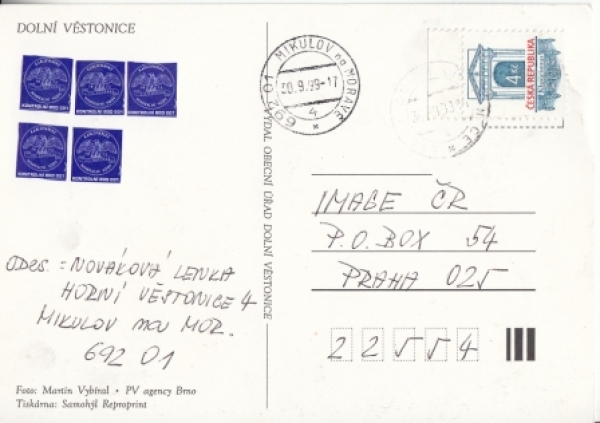 DOLNÍ VĚSTONICE
KONTROLNÍ BOD 001
KONTROLNÍ BOD 001
KONTROLNÍ BOD 001
KONTROLNÍ BOD 001
KONTROLNÍ BOD 001
MIKULOV na MORAVĚ
30.9.99-17
692 01
4
4 Kč
ČESKÁ REPUBLIKA
VYDAL OBECNÍ ÚŘAD DOLNÍ VĚSTONICE
IMAGE ČR
P.O. BOX 54
PRAHA 025
22554
ODES. = NOVÁKOVÁ LENKA
HORNÍ VĚSTONICE 4
MIKULOV na MOR.
692 01
Foto: Martin Vybíral • PV agency Brno
Tiskárna: Samohýl Reproprint